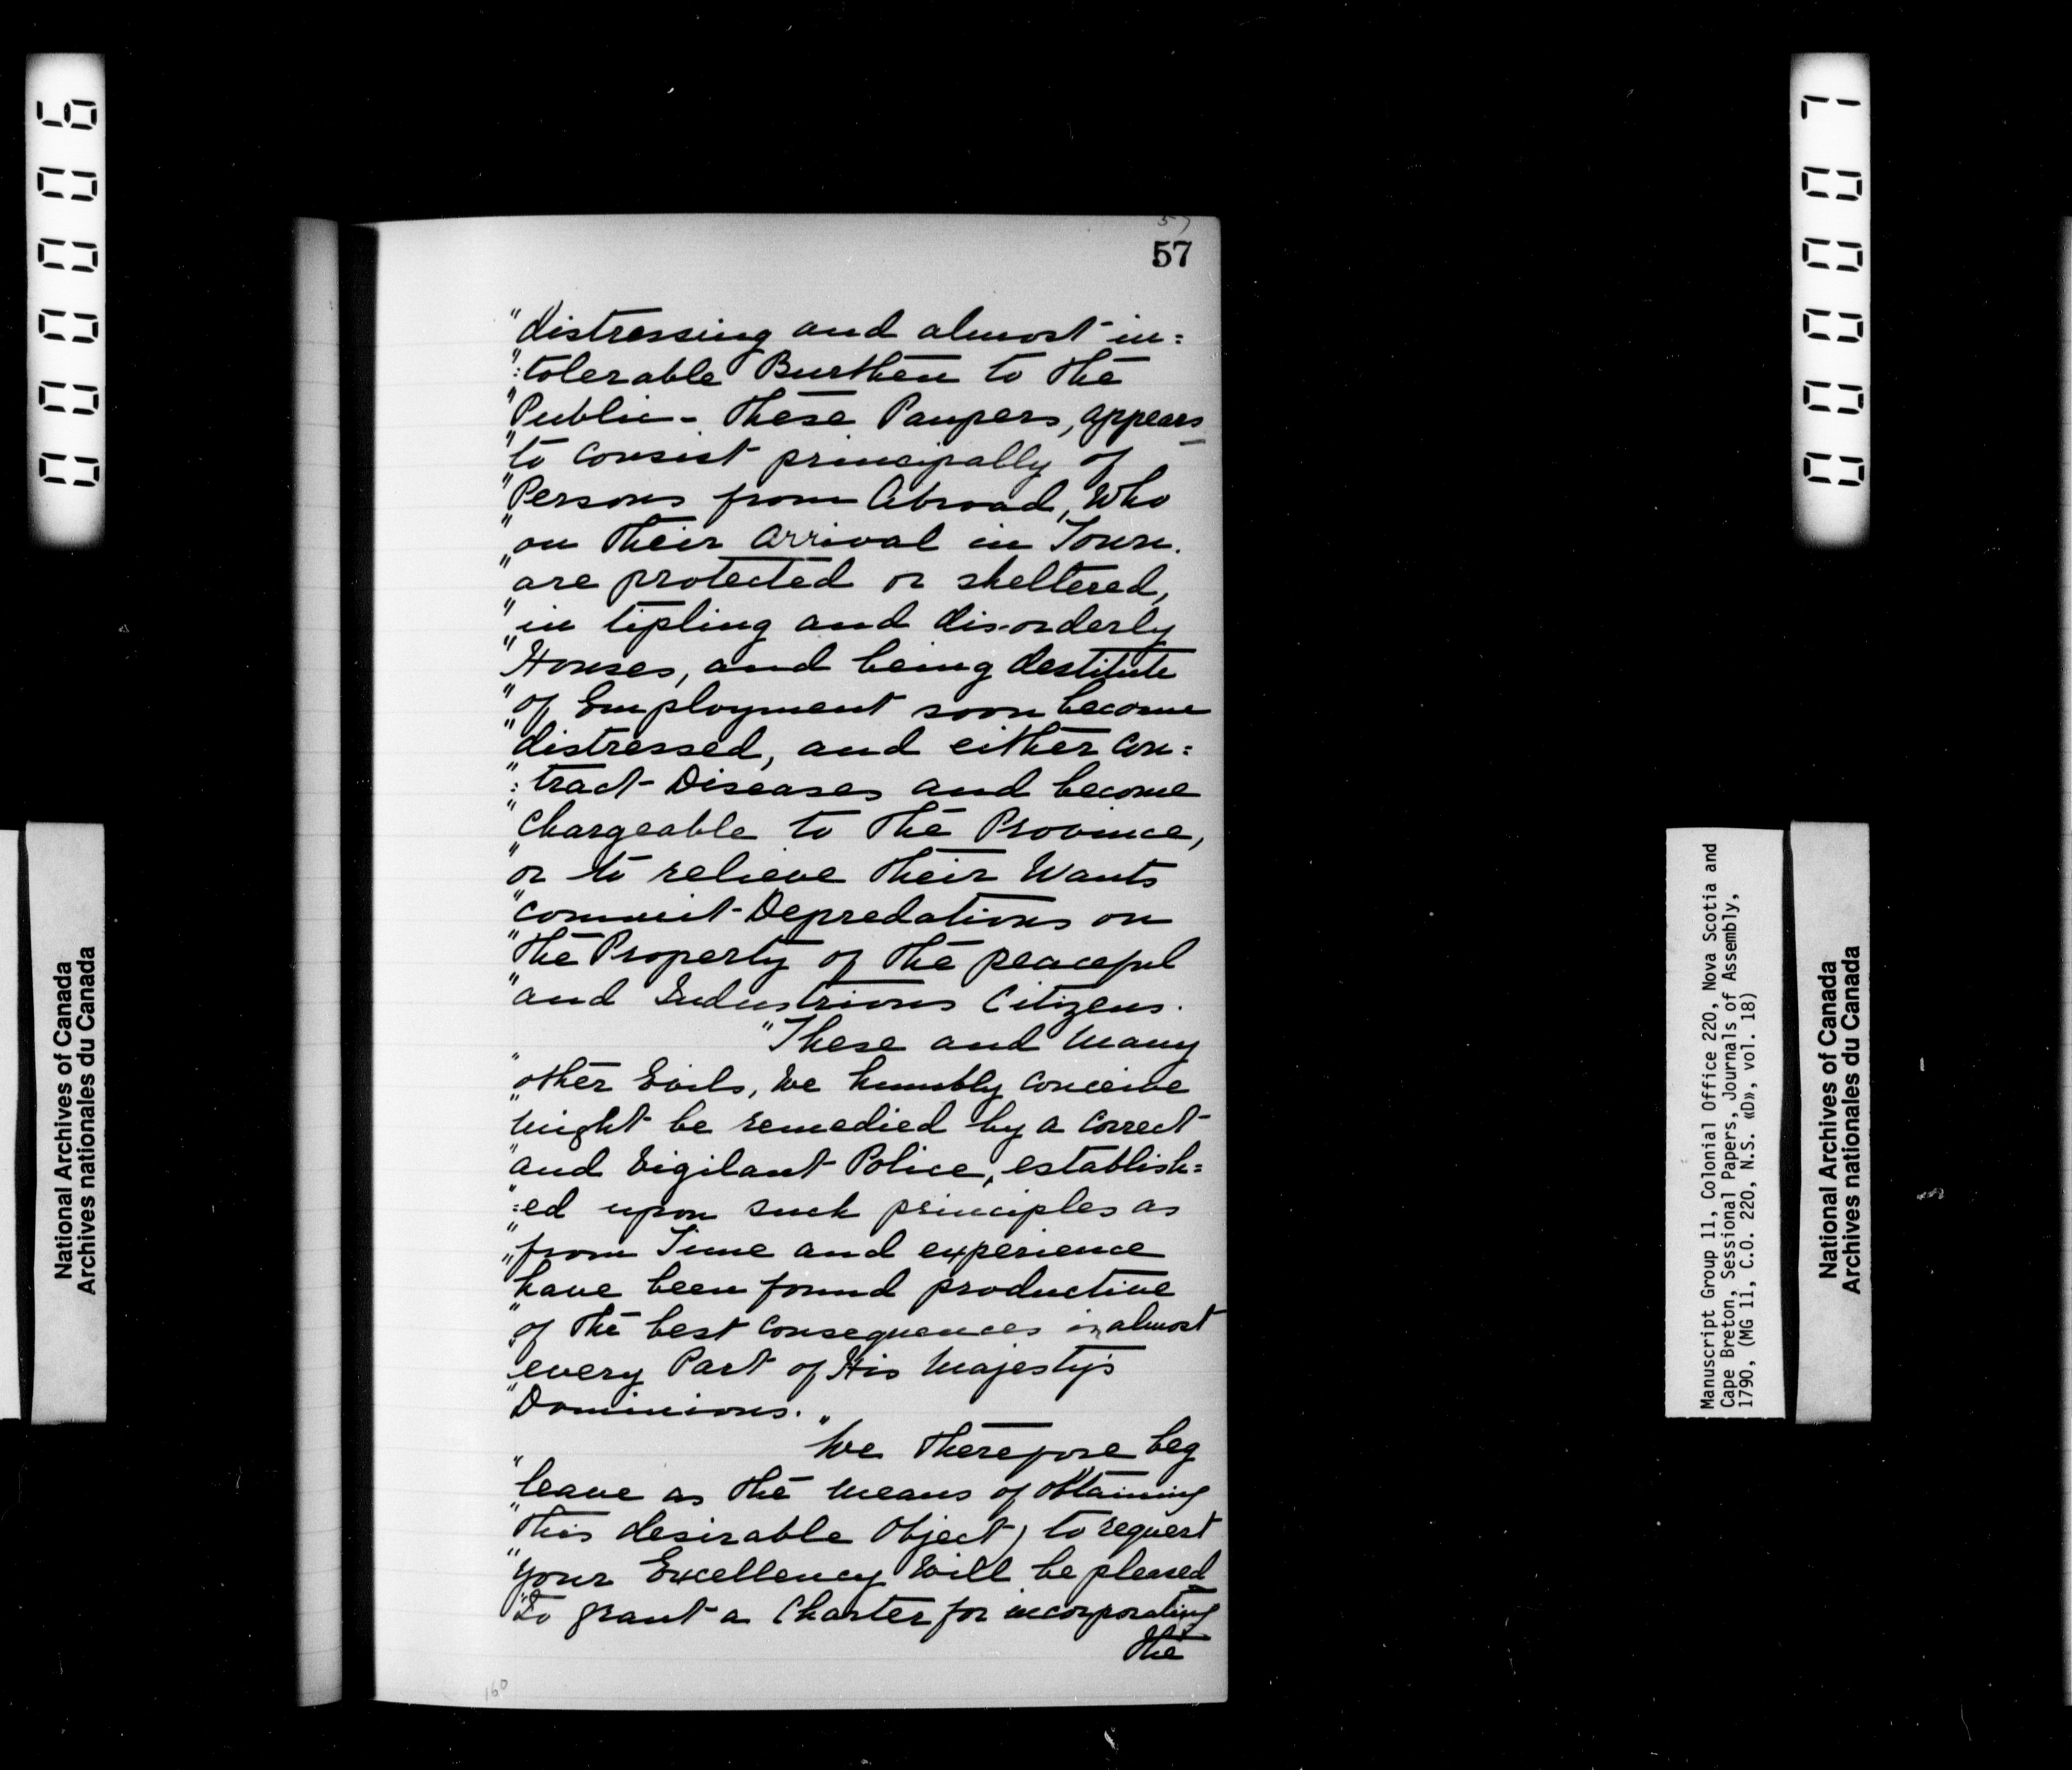 57
57
"distressing and almost in=
":tolerable Burthen to the
"Public - These Paupers, appears
"to consist principally of
"Persons from Abroad, Who
"on their arrival in Town.
"are protected or sheltered,
"in tipling and disorderly
"Houses, and being destitute
"of Employment soon become
"distressed, and either Con=
":tract Diseases and become
"Chargeable to the Province,
"or to relieve their Wants
"commit Depredations on
"the Property of the peaceful
"and Industrious Citizens.
"These and Many
"other Evils, We humbly Conceive
"might be remedied by a Correct
"and Vigilant Police, establish=
":ed upon such principles as
"from Time and experience
"have been found productive
"of the best Consequences in almost
"every Part of His Majesty's
"Dominions.
"We therefore beg
"leave as the means of obtaining
"this desirable Object, to request
"your Excellency Will be pleased
"To grant a Charter for incorporating
the
160
000006
National Archives of Canada
Archives nationales du Canada
000007
Manuscript Group 11, Colonial Office 220, Nova Scotia and
Cape Breton, Sessional Papers, Journals of Assembly,
1790, (MG 11, C.O. 220, N.S. «D», vol. 18)
National Archives of Canada
Archives nationales du Canada